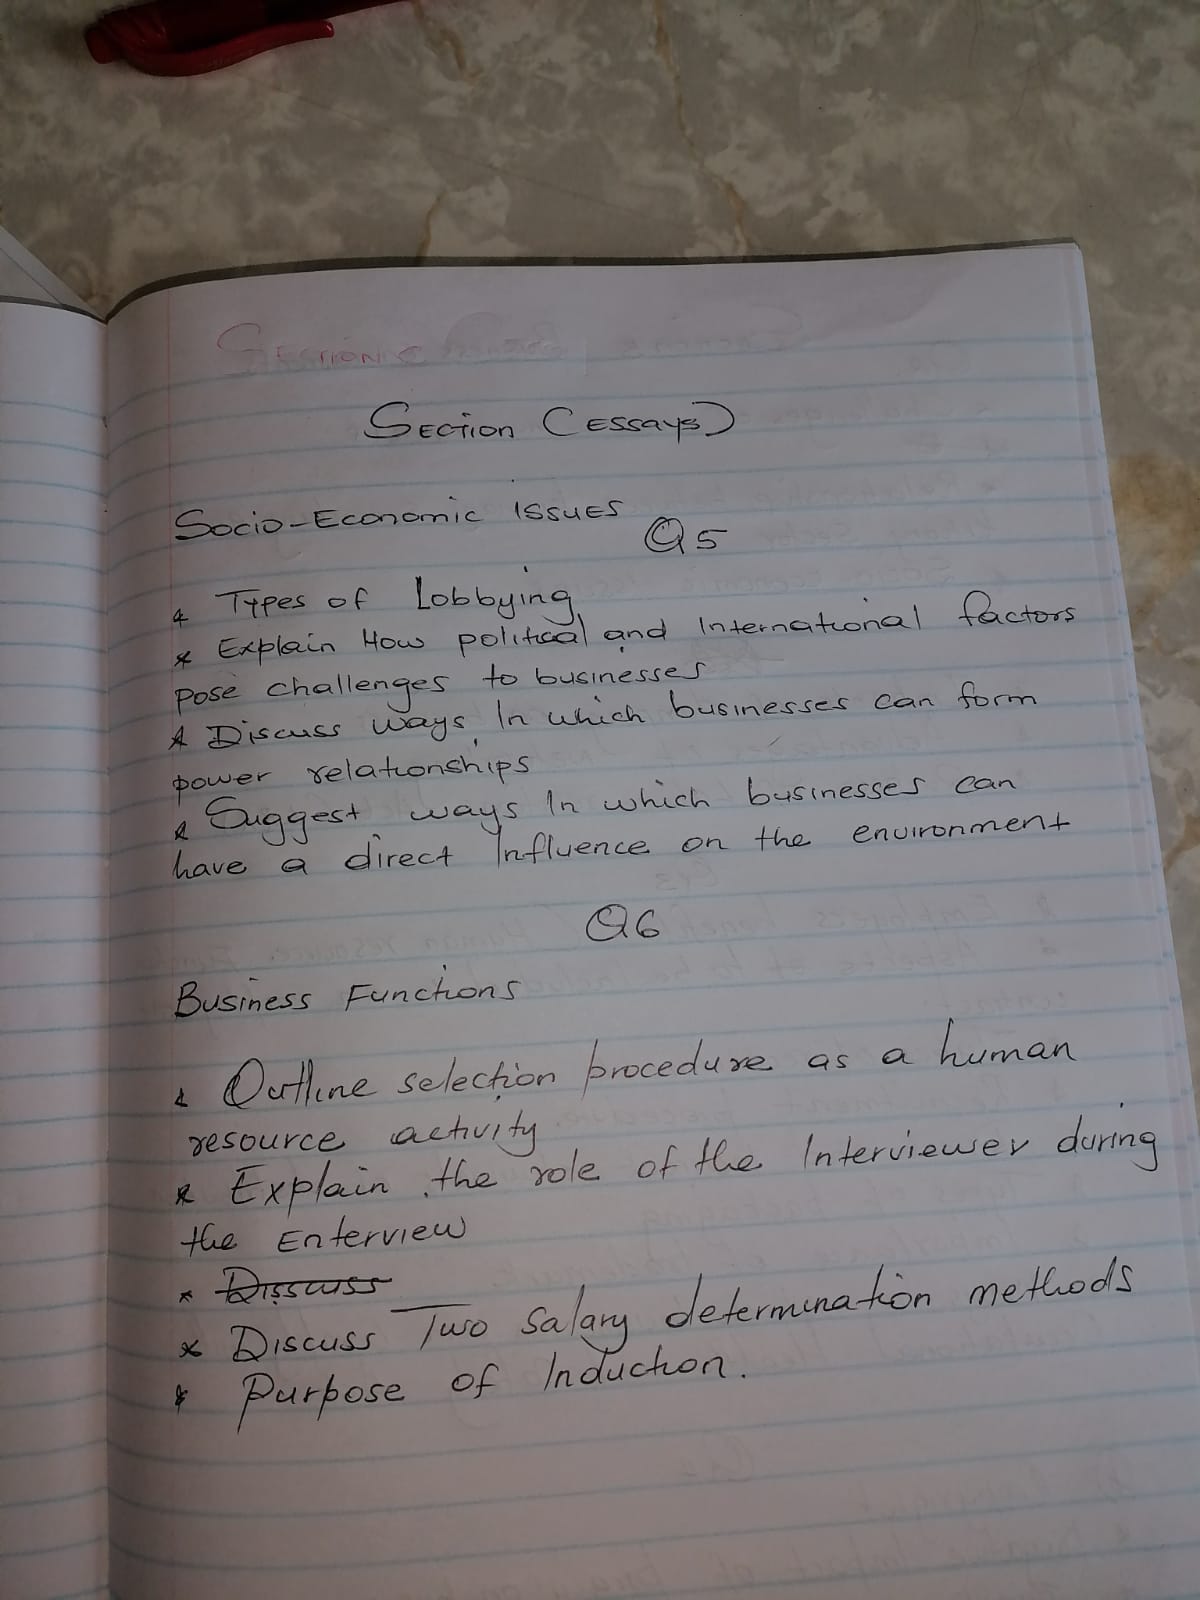 SECTION C ESSAYS)
Socio-Economic Issues
Q5
* Types of Lobbying
* Explain How political and International factors
pose challenges to businesses
* Discuss ways In which businesses can form
power relationships
* Suggest ways In which businesses can
have a direct Influence on the environment
Q6
Business Functions
* Outline selection procedure as a human
resource activity
* Explain the role of the Interviewer during
the Enterview
* Disscuss
* Discuss Two Salary determination methods
* Purpose of Induction.